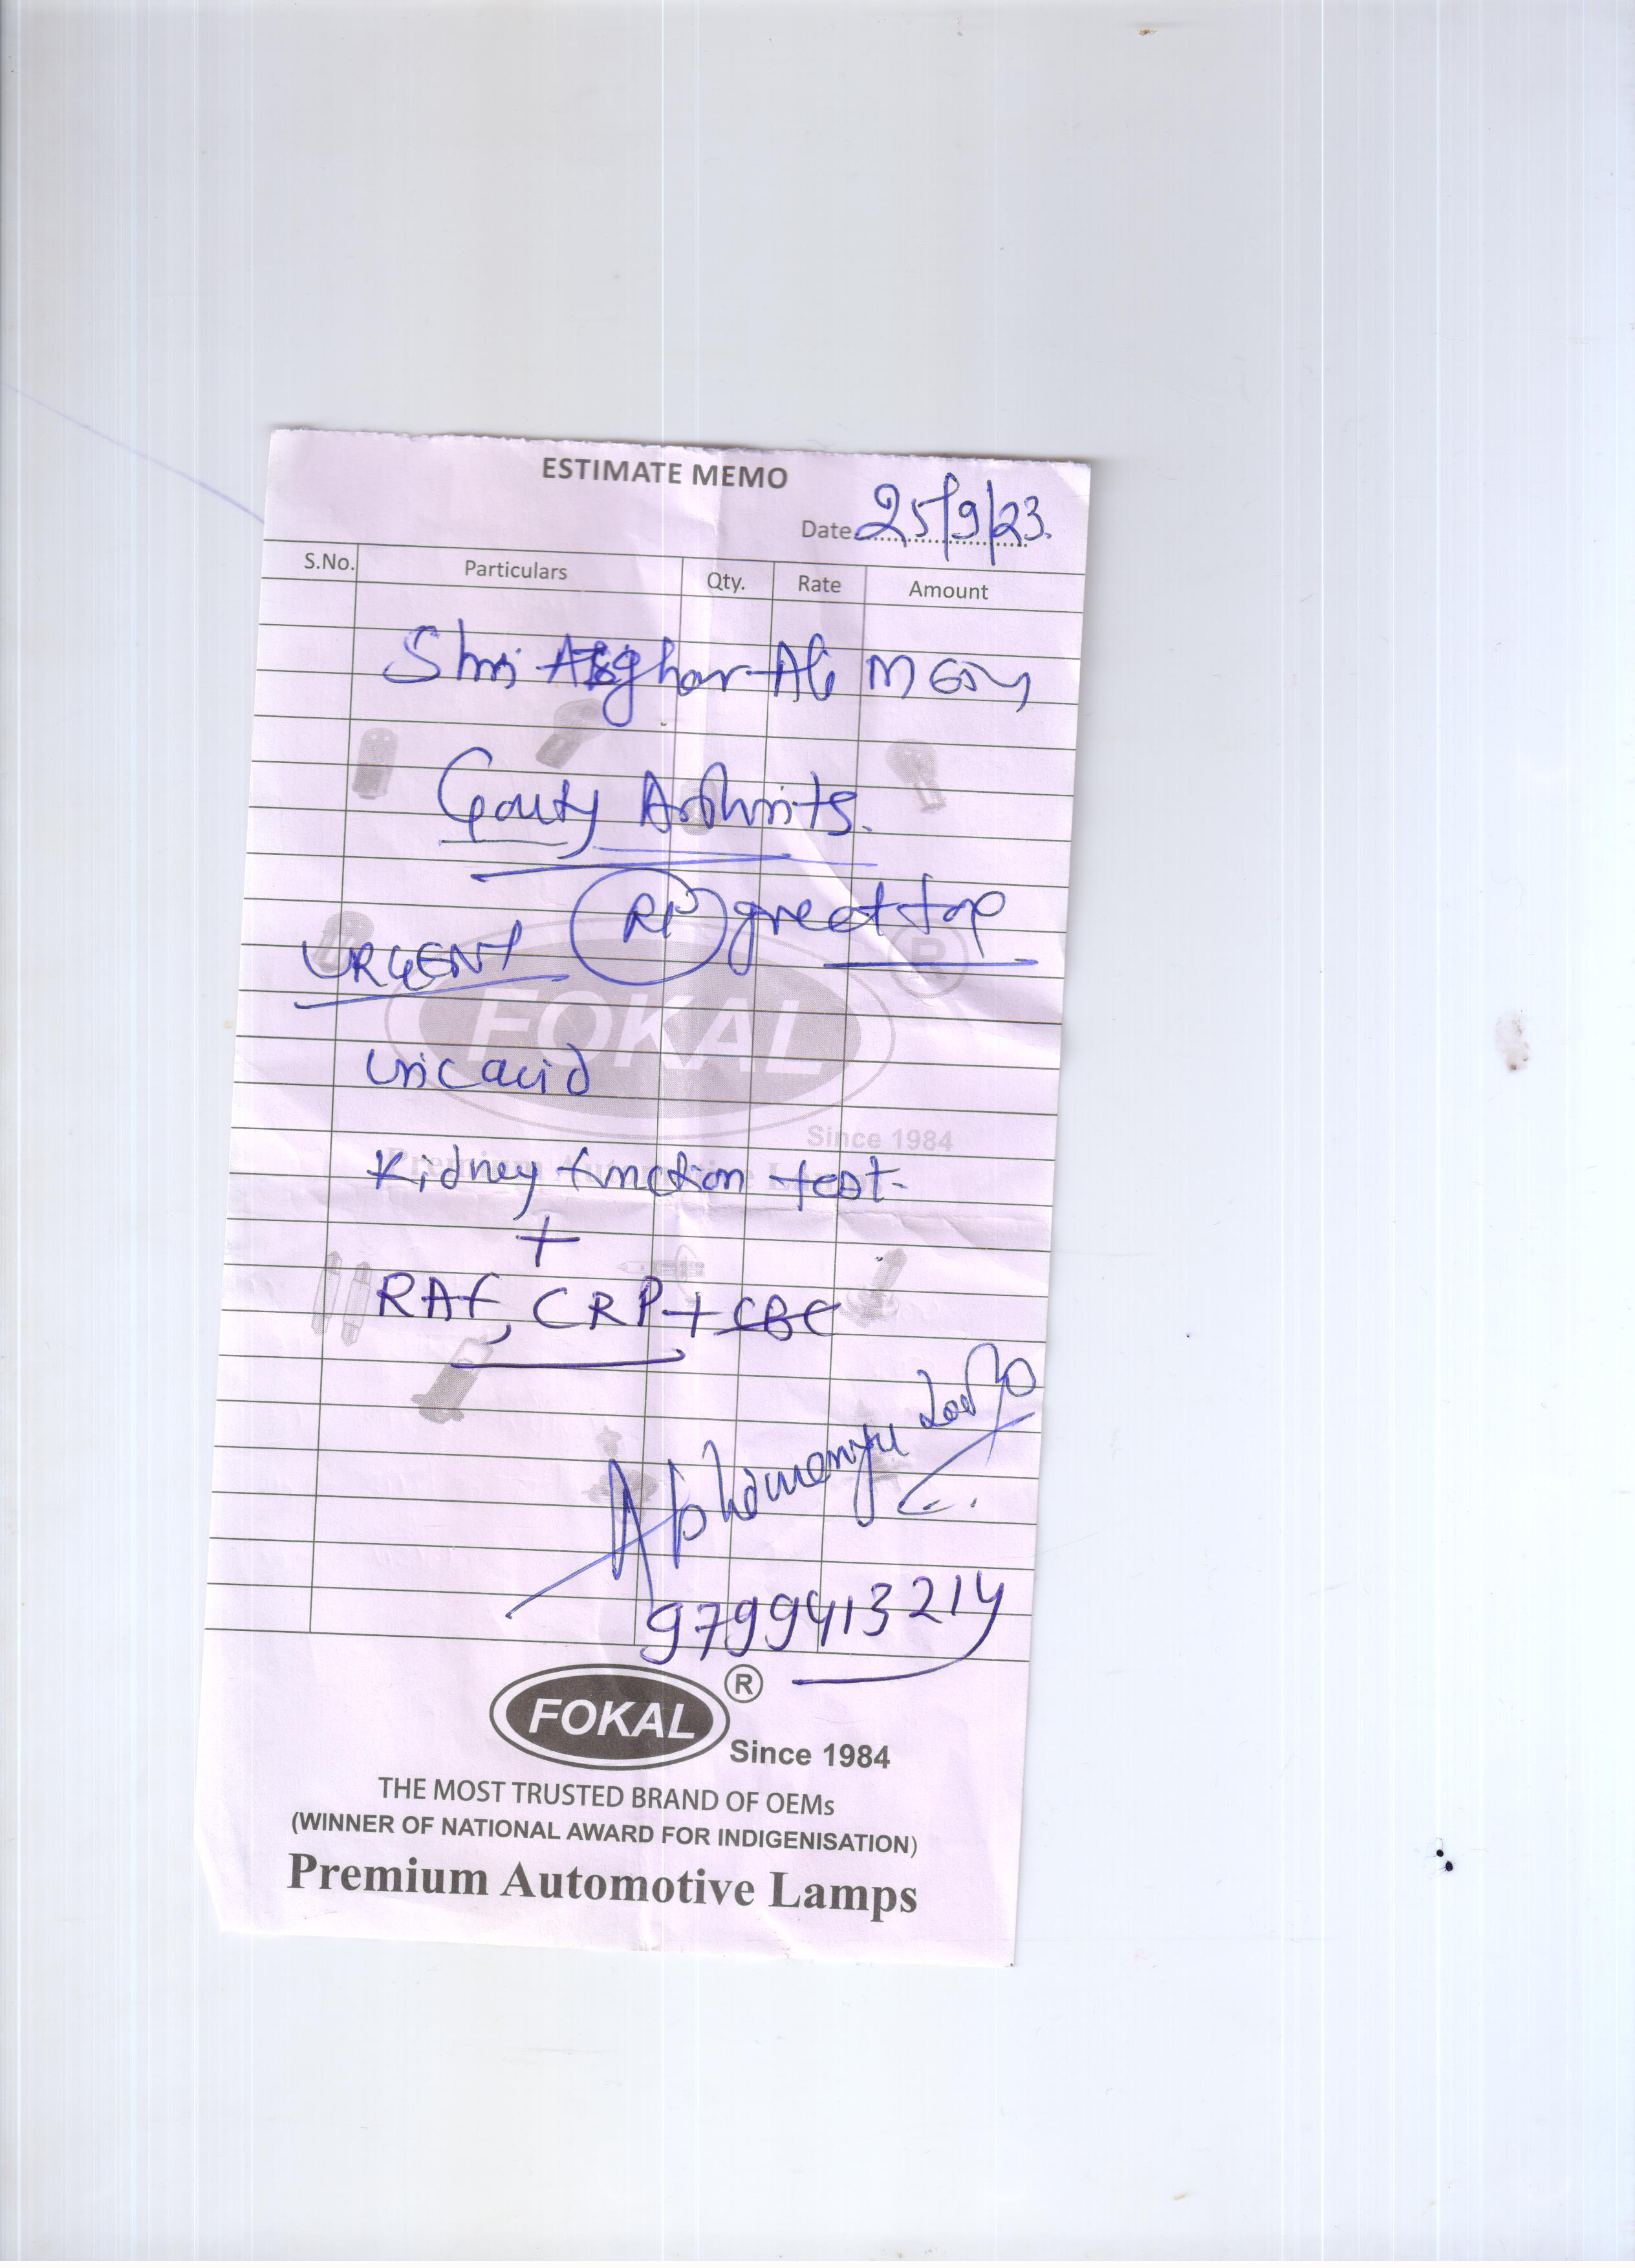 ESTIMATE MEMO
Date 25/9/23.
S.No. Particulars Qty. Rate Amount
Shri Asghar Ali M 65y
Gouty Arthritis.
URGENT Rt great toe
FOKAL ®
Uric acid
Since 1984
Premium Automotive Lamps
Kidney function test-
+
RAf, CRP + CBC
Abhimanyu
9799413214
FOKAL ®
Since 1984
THE MOST TRUSTED BRAND OF OEMs
(WINNER OF NATIONAL AWARD FOR INDIGENISATION)
Premium Automotive Lamps